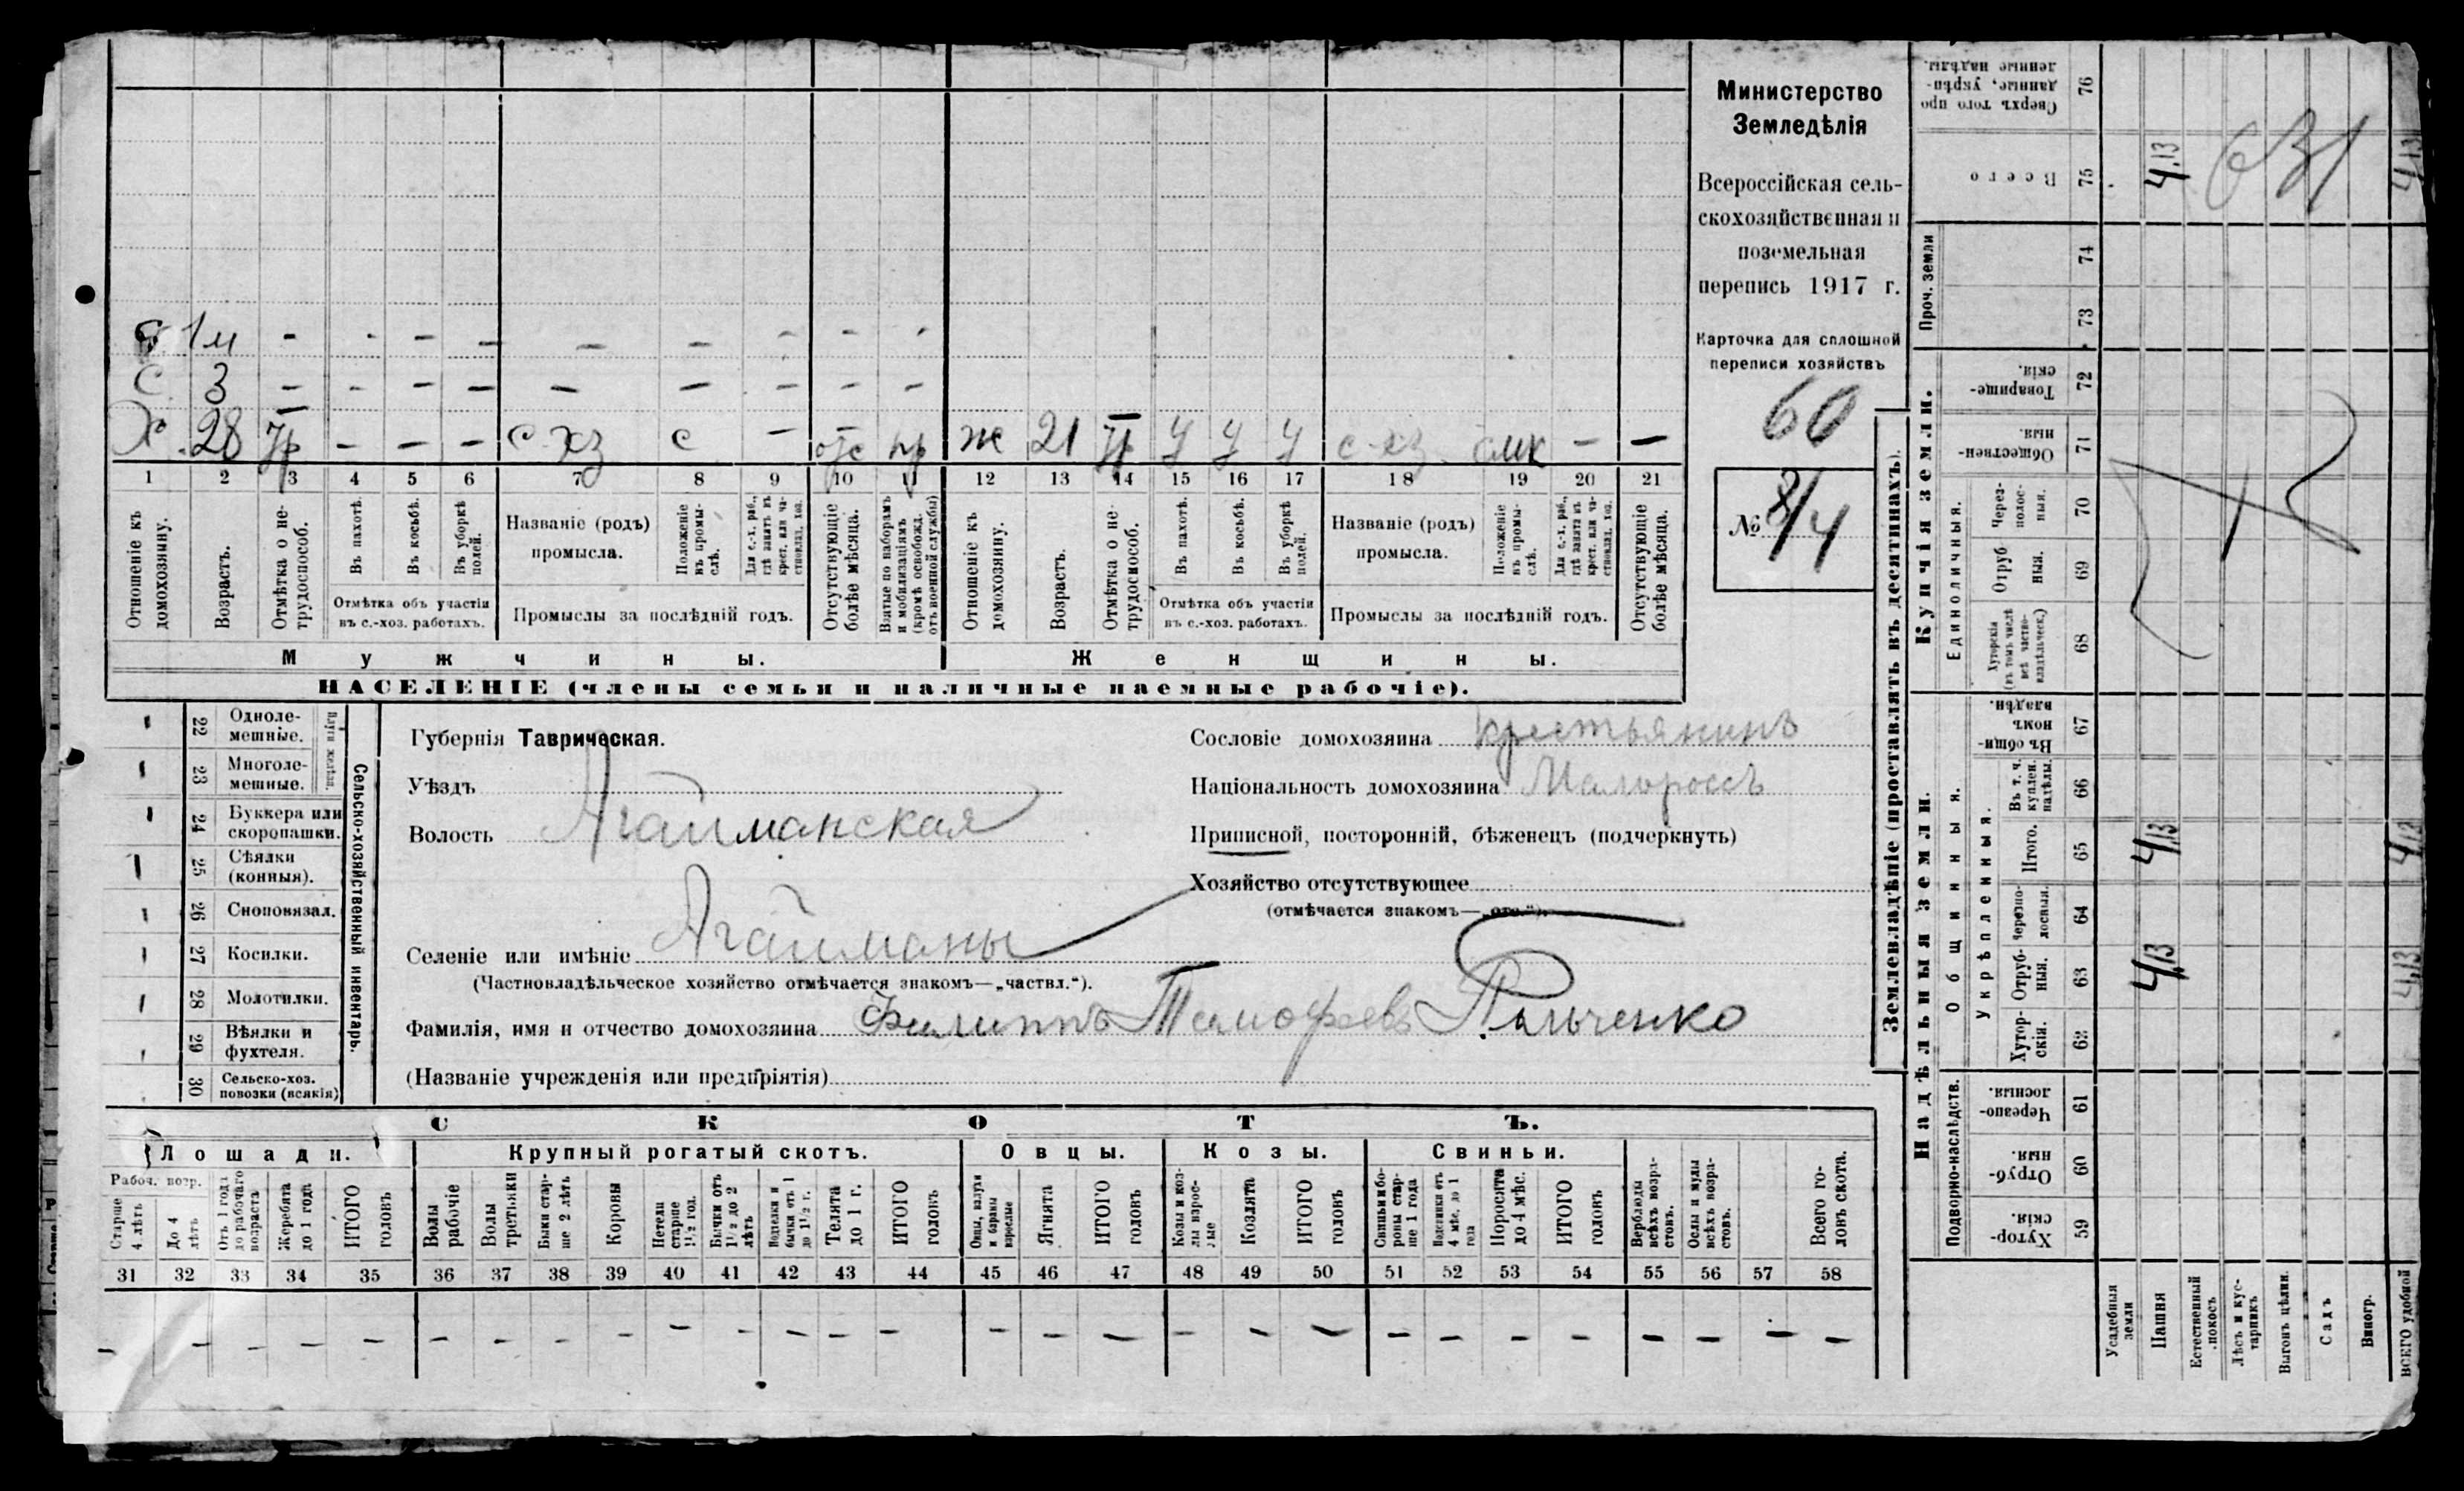 С. 1м - - - - - - - - -
С. 3 - - - - - - - - -
Х 28 Тр - - - С-хз с - отс пр ж 21 Тр У У У с-хз смк - -
1 2 3 4 5 6 7 8 9 10 11 12 13 14 15 16 17 18 19 20 21
Отношеніе къ домохозяину.
Возрастъ.
Отмѣтка о нетрудоспособ.
Въ пахотѣ.
Въ косьбѣ.
Въ уборкѣ полей.
Отмѣтка объ участіи
въ с.-хоз. работахъ.
Названіе (родъ)
промысла.
Положеніе въ промыслѣ.
Для с.-х. раб., гдѣ занятъ въ крест. или частновлад. хоз.
Промыслы за послѣдній годъ.
Отсутствующіе болѣе мѣсяца.
Взятые по наборамъ и мобилизаціямъ (кромѣ освобожд. отъ военной службы)
Отношеніе къ домохозяину.
Возрастъ.
Отмѣтка о нетрудоспособ.
Въ пахотѣ.
Въ косьбѣ.
Въ уборкѣ полей.
Отмѣтка объ участіи
въ с.-хоз. работахъ.
Названіе (родъ)
промысла.
Положеніе въ промыслѣ.
Для с.-х. раб., гдѣ занята въ крест. или частновлад. хоз.
Промыслы за послѣдній годъ.
Отсутствующіе болѣе мѣсяца.
Мужчины.
Женщины.
НАСЕЛЕНІЕ (члены семьи и наличные наемные рабочіе).
Министерство
Земледѣлія
Всероссійская сель-
скохозяйственная и
поземельная
перепись 1917 г.
Карточка для сплошной
переписи хозяйствъ
60
№ 8/4
22 Одноле-
мешные.
23 Многоле-
мешные.
Плуги желѣзн.
24 Буккера или
скоропашки.
25 Сѣялки
(конныя).
26 Сноповязал.
27 Косилки.
28 Молотилки.
29 Вѣялки и
фухтеля.
30 Сельско-хоз.
повозки (всякія)
Сельско-хозяйственный инвентарь.
Губернія Таврическая.
Уѣздъ
Волость Агайманская
Селеніе или имѣніе Агайманы
(Частновладѣльческое хозяйство отмѣчается знакомъ—„частвл.“).
Фамилія, имя и отчество домохозяина Филиппъ Тимофеевъ Пальченко
(Названіе учрежденія или предпріятія)
Сословіе домохозяина крестьянинъ
Національность домохозяина Малороссъ
Приписной, посторонній, бѣженецъ (подчеркнуть)
Хозяйство отсутствующее
(отмѣчается знакомъ—„отс.“).
СКОТЪ.
Лошади. Крупный рогатый скотъ. Овцы. Козы. Свиньи.
Рабоч. возр.
Старше 4 лѣтъ
До 4 лѣтъ
Отъ 1 года до рабочаго возраста
Жеребята до 1 года
ИТОГО головъ
Волы рабочіе
Волы третьяки
Быки старше 2 лѣтъ
Коровы
Нетели старше 1½ год.
Бычки отъ 1½ до 2 лѣтъ
Подтелки и бычки отъ 1 до 1½ г.
Телята до 1 г.
ИТОГО головъ
Овцы, валухи и бараны взрослые
Ягнята
ИТОГО головъ
Козы и козлы взрослые
Козлята
ИТОГО головъ
Свиньи и боровы старше 1 года
Подсвинки отъ 4 мѣс. до 1 года
Поросята до 4 мѣс.
ИТОГО головъ
Верблюды всѣхъ возрастовъ.
Ослы и мулы всѣхъ возрастовъ.
Всего головъ скота.
31 32 33 34 35 36 37 38 39 40 41 42 43 44 45 46 47 48 49 50 51 52 53 54 55 56 57 58
- - - - - - - - - - - - - - - - - - - - - - - - - - - -
Землевладѣніе (проставлять въ десятинахъ).
Надѣльныя земли.
Купчія земли.
Проч. земли
Подворно-наслѣдств.
Общинныя.
Укрѣпленныя.
Единоличныя.
59 Хутор-
скія.
60 Отруб-
ныя.
61 Черезпо-
лосныя.
62 Хутор-
скія.
63 Отруб-
ныя. 4,13 4,13
64 Черезпо-
лосныя.
65 Итого. 4,13 4,13
66 Въ т. ч.
куплен.
надѣлы.
67 Въ общин-
номъ
владѣн.
68 Хуторскія
(въ томъ числѣ
всѣ частно-
владѣльческ.)
69 Отруб
ныя.
70 Через-
полос-
ныя.
71 Обществен-
ныя.
72 Товарище-
скія.
73
74
75 Всего 4,13 4,13
76 Сверхъ того про
данные, укрѣп-
ленные надѣлы.
631
Усадебныя земли
Пашня
Естественный покосъ.
Лѣсъ и кустарникъ
Выгонъ цѣлин.
Садъ
Виногр.
ВСЕГО удобной